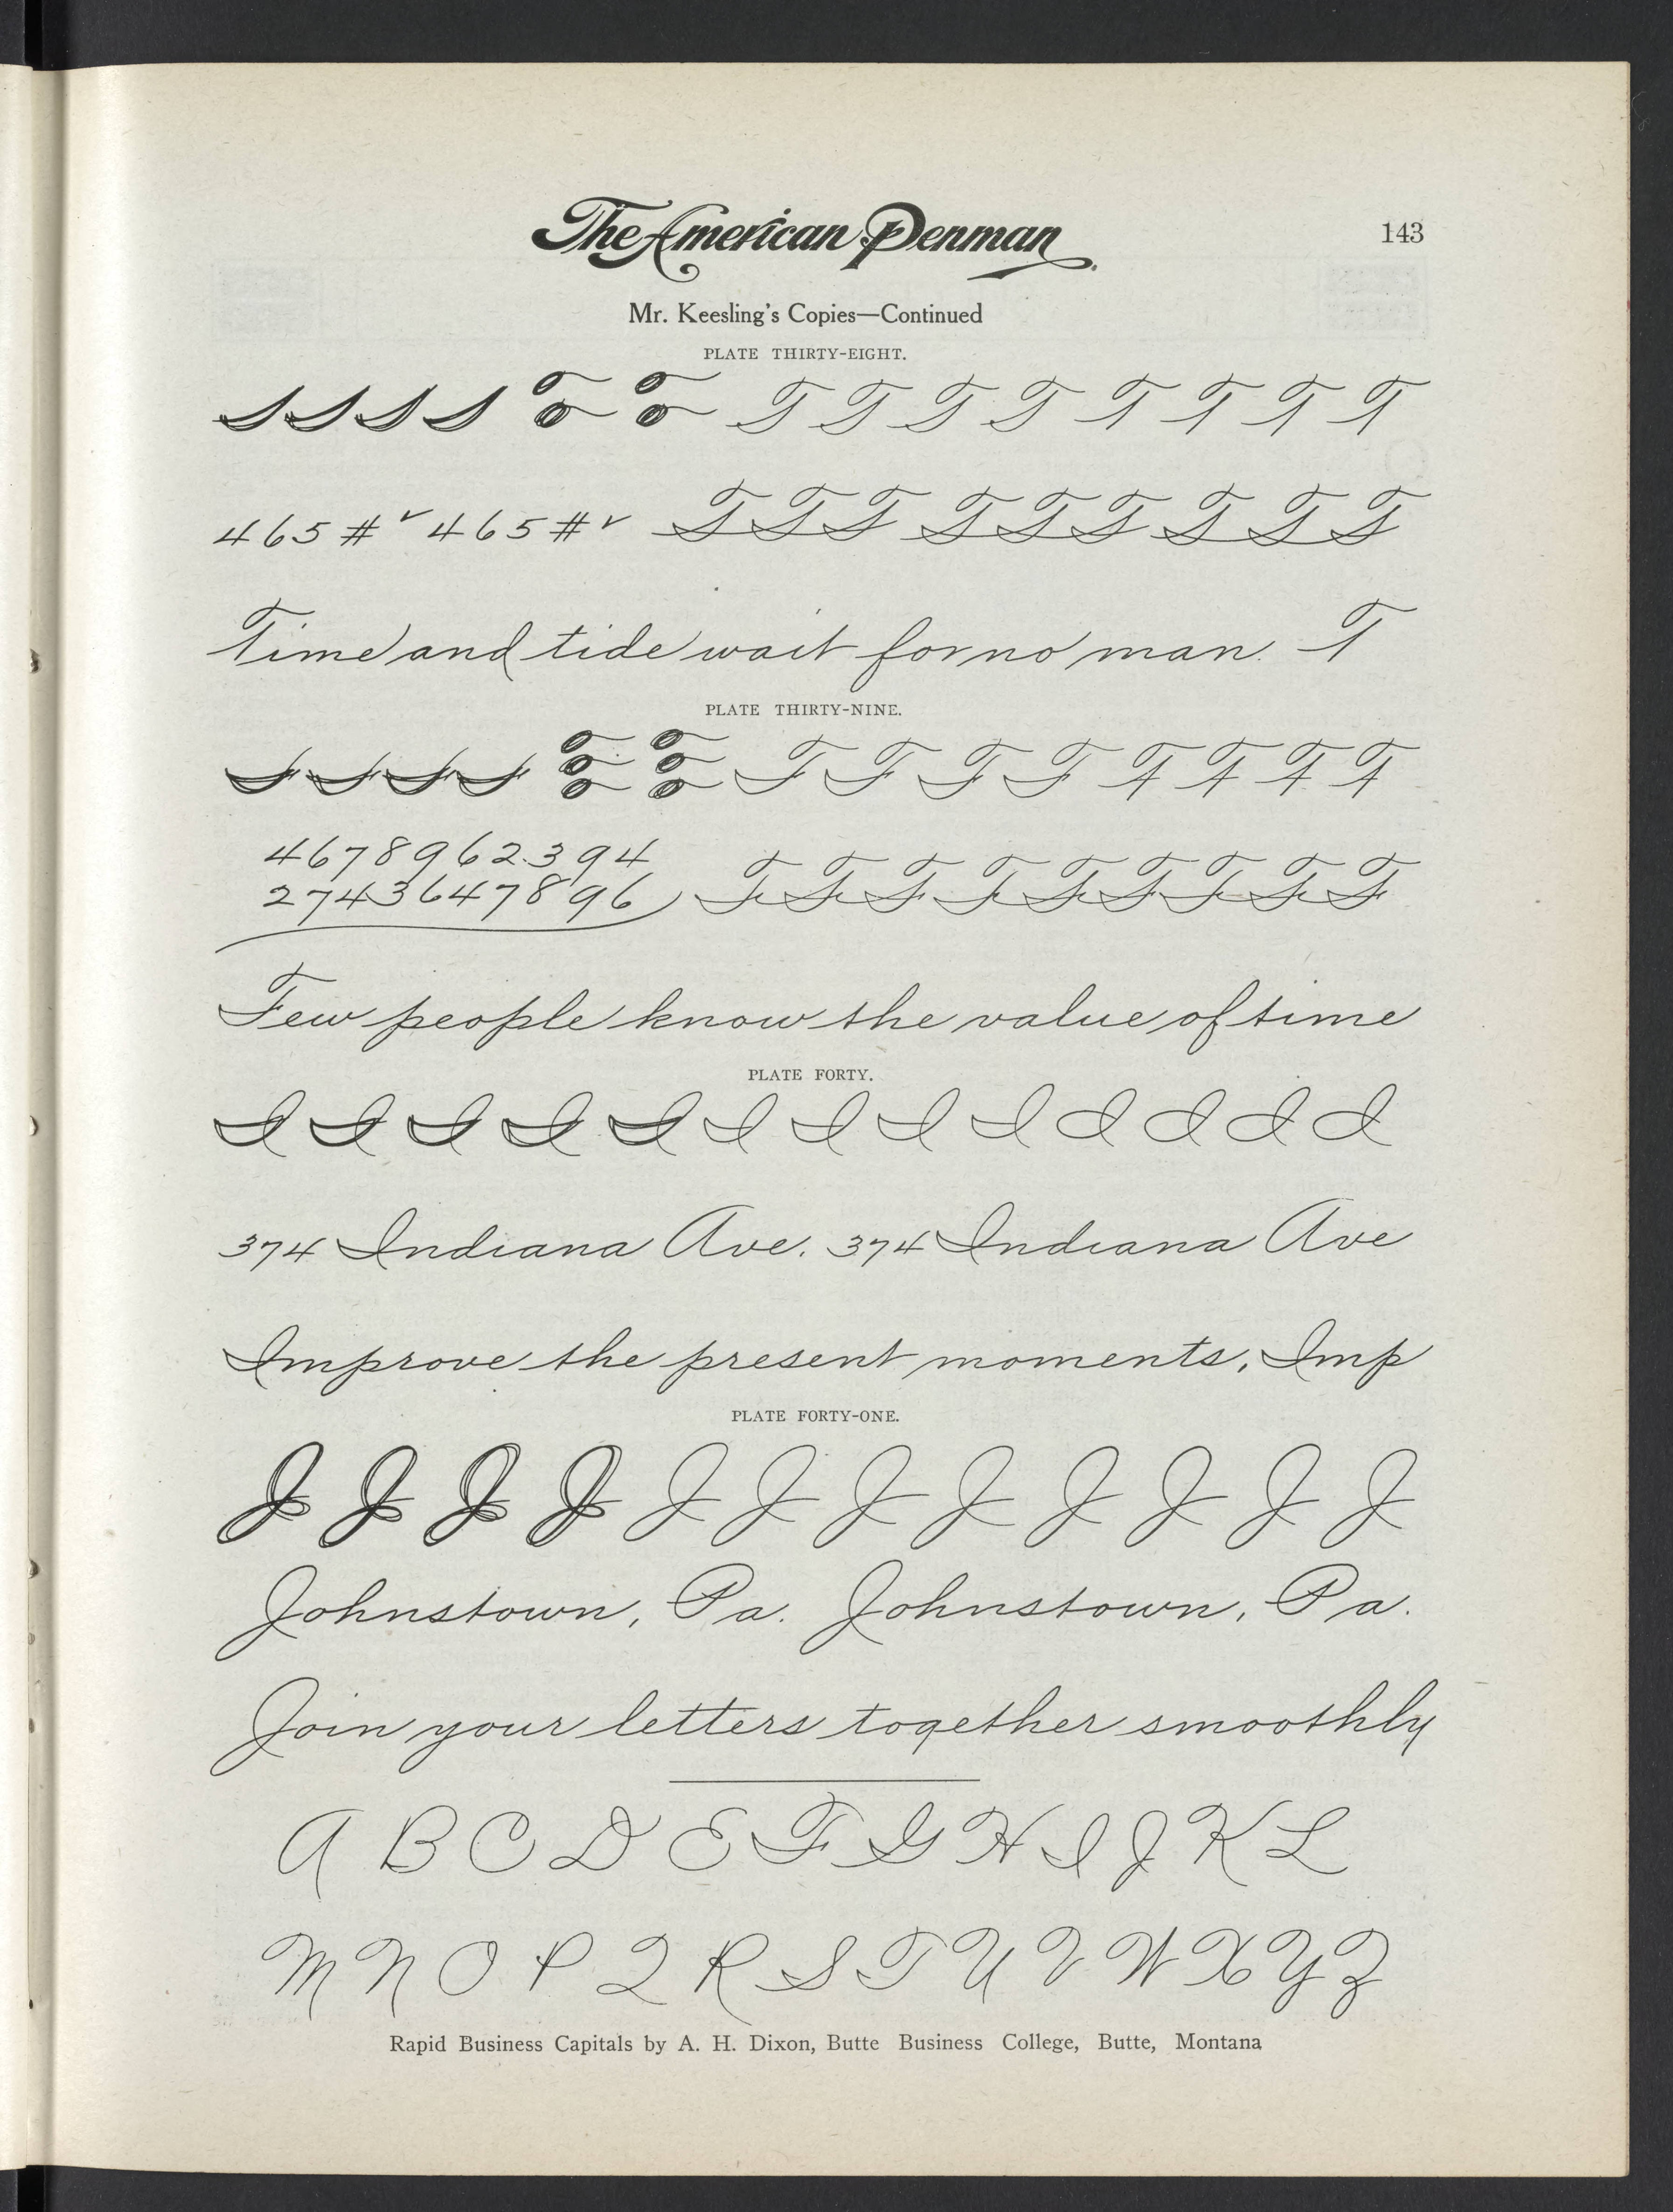 The American Penman.
143
Mr. Keesling's Copies—Continued
PLATE THIRTY-EIGHT.
T T T T T T T T
465#✓ 465#✓ T T T T T T T T T
Time and tide wait for no man. T
PLATE THIRTY-NINE.
F F F F F F F F
4678962394
2743647896 F F F F F F F F F
Few people know the value of time
PLATE FORTY.
I I I I I I I I I I I I I
374 Indiana Ave. 374 Indiana Ave
Improve the present moments, Imp
PLATE FORTY-ONE.
J J J J J J J J J J J J
Johnstown, Pa. Johnstown, Pa.
Join your letters together smoothly
A B C D E F G H I J K L
M N O P Q R S T U V W X Y Z
Rapid Business Capitals by A. H. Dixon, Butte Business College, Butte, Montana